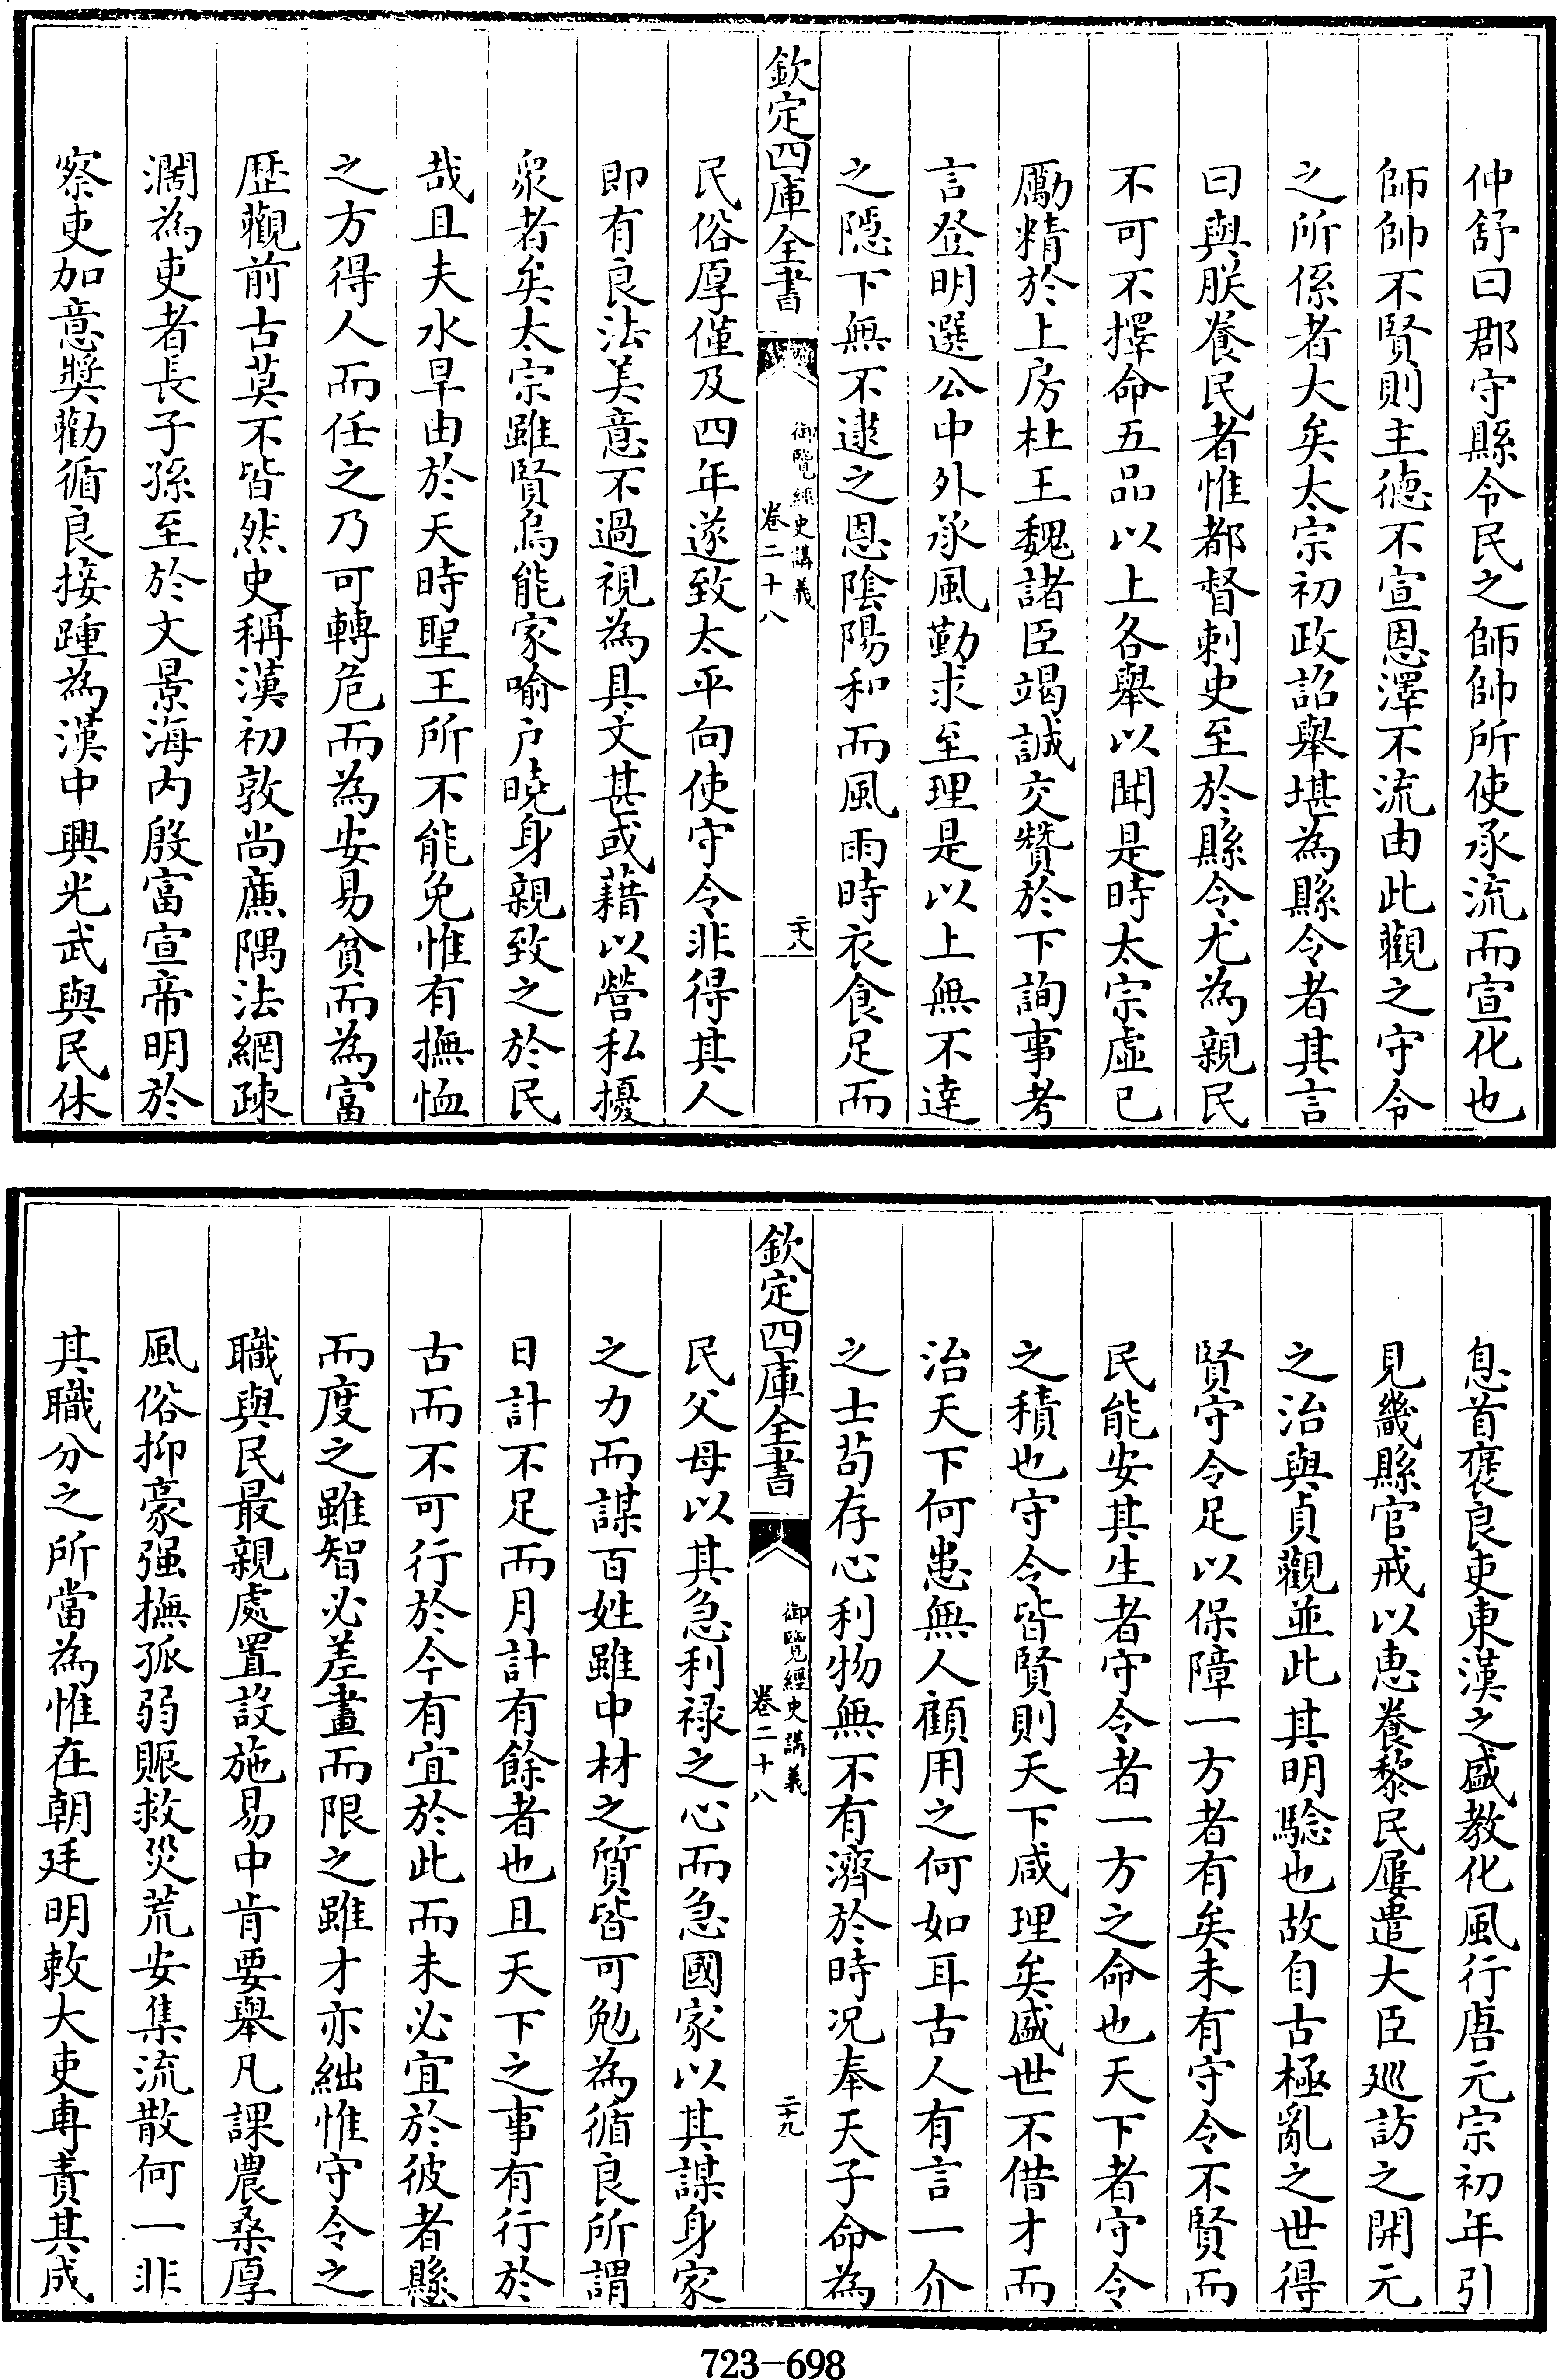 仲舒曰郡守縣令民之師帥所使承流而宣化也
師帥不賢則主德不宣恩澤不流由此觀之守令
之所係者大矣太宗初政詔舉堪為縣令者其言
曰與朕養民者惟都督刺史至於縣令尤為親民
不可不擇命五品以上各舉以聞是時太宗虛已
勵精於上房杜王魏諸臣竭誠交贊於下詢事考
言登明選公中外承風勤求至理是以上無不達
之隱下無不逮之恩陰陽和而風雨時衣食足而
欽定四庫全書
御覽經史講義
卷二十八
二十八
民俗厚僅及四年遂致太平向使守令非得其人
即有良法美意不過視為具文甚或藉以營私擾
衆者矣太宗雖賢烏能家喻户曉身親致之於民
哉且夫水旱由於天時聖王所不能免惟有撫恤
之方得人而任之乃可轉危而為安易貧而為富
歴觀前古莫不皆然史稱漢初敦尚亷隅法網疎
濶為吏者長子孫至於文景海内殷富宣帝明於
察吏加意奬勸循良接踵為漢中興光武與民休
息首褒良吏東漢之盛教化風行唐元宗初年引
見畿縣官戒以惠養黎民屢遣大臣廵訪之開元
之治與貞觀並此其明驗也故自古極亂之世得
賢守令足以保障一方者有矣未有守令不賢而
民能安其生者守令者一方之命也天下者守令
之積也守令皆賢則天下咸理矣盛世不借才而
治天下何患無人顧用之何如耳古人有言一介
之士茍存心利物無不有濟於時况奉天子命為
欽定四庫全書
御覽經史講義
卷二十八
二十九
民父母以其急利禄之心而急國家以其謀身家
之力而謀百姓雖中材之質皆可勉為循良所謂
日計不足而月計有餘者也且天下之事有行於
古而不可行於今有宜於此而未必宜於彼者懸
而度之雖智必差畫而限之雖才亦絀惟守令之
職與民最親處置設施易中肯要舉凡課農桑厚
風俗抑豪强撫孤弱賑救災荒安集流散何一非
其職分之所當為惟在朝廷明敕大吏專責其成
723-698